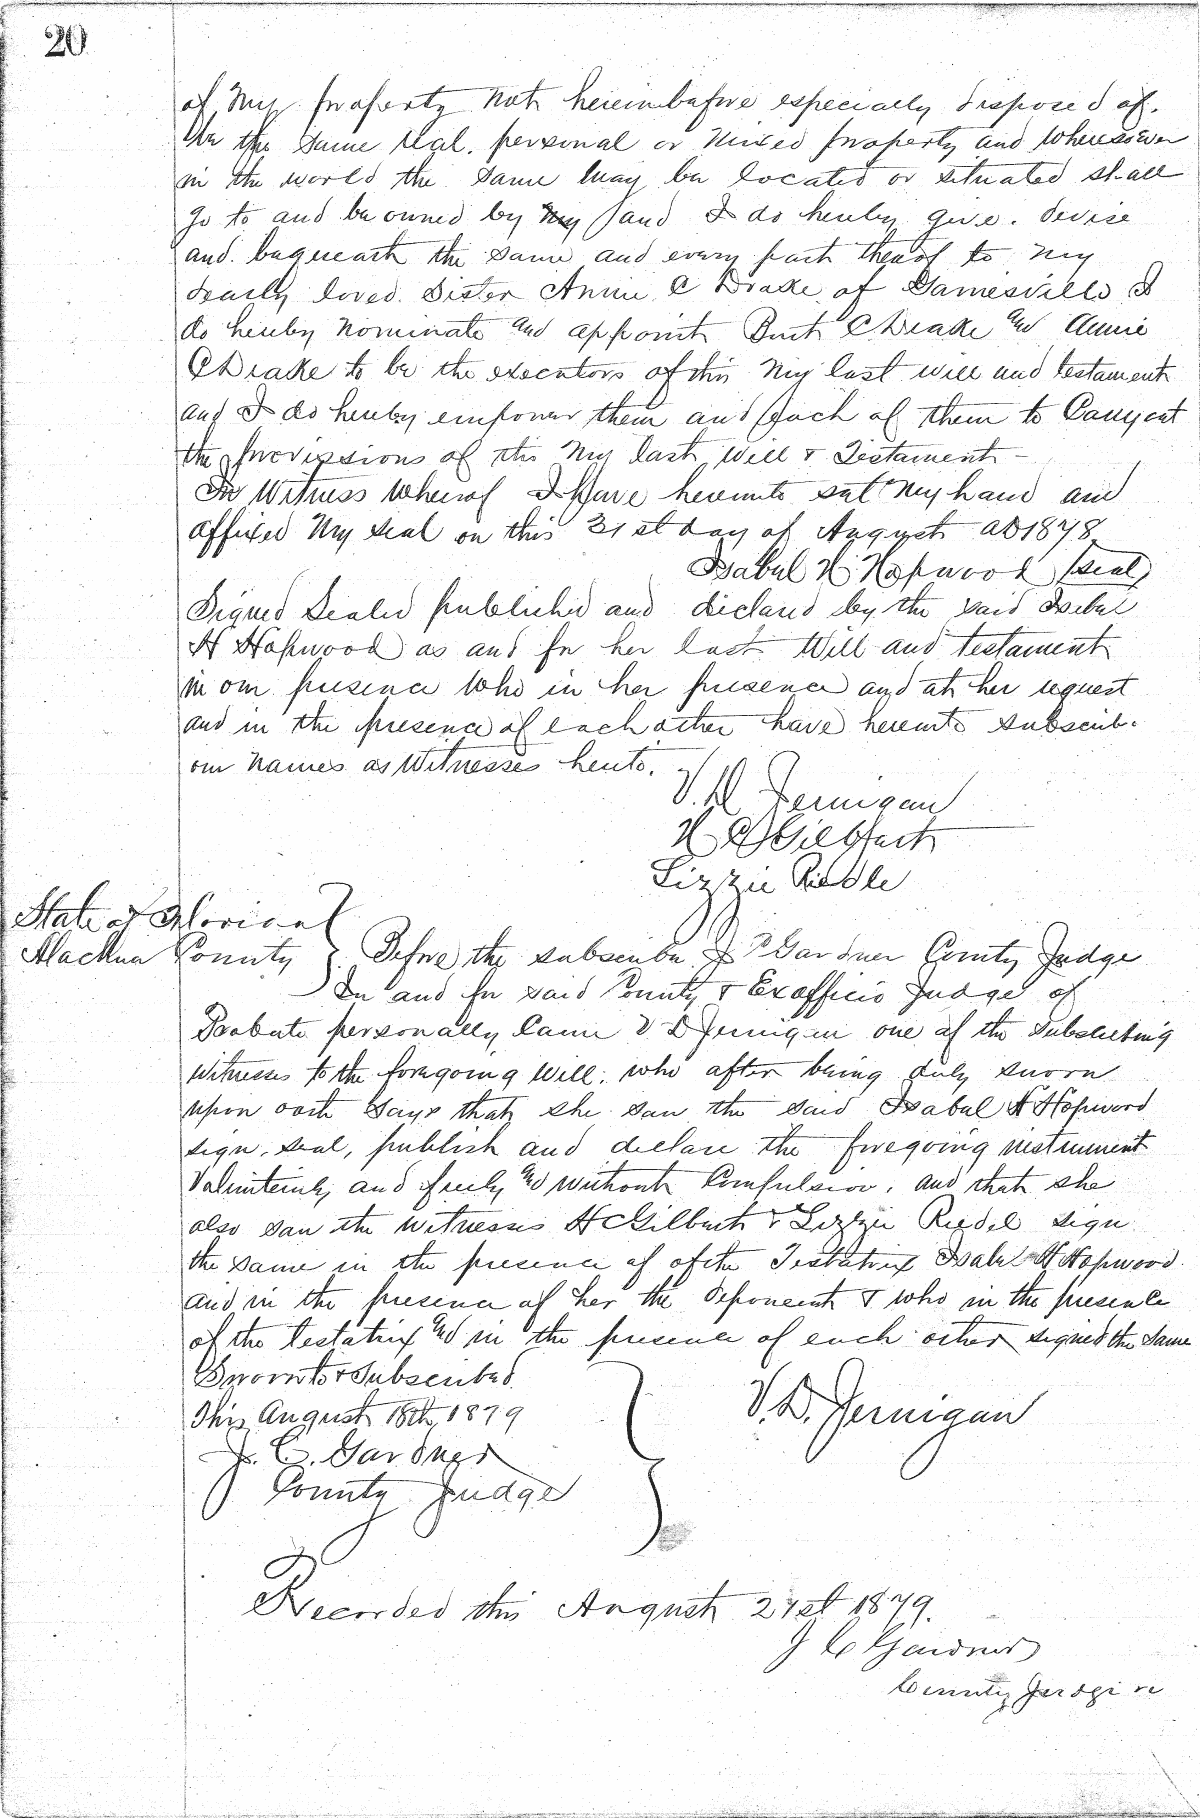 20
of My property not hereinbefore especially disposed of.
be the same real. personal or mixed property and wheresoever
in the world the same may be located or situated shall
go to and be owned by my and I do hereby give. devise
and. bequeath the same and every part thereof to my
dearly loved Sister Annie C Drake of Gainesville I
do hereby nominate and appoint C Drake and Annie
C Drake to be the executors of this my last will and testament
and I do hereby empower them and each of them to Carry out
the provissions of this my last will & Testament -
In Witness whereof I Have hereunto set My hand and
affixed My seal on this 31st day of August AD 1878
Isabel H Hopwood (seal)
Signed Sealed published and declared by the said Isabel
H Hopwood as and for her last Will and testament
in our presence who in her presence and at her request
and in the presence of each other have hereunto subscrib.
our names as Witnesses hereto.
V. D Jernigan
H C Gilbert
Lizzie Riedle
State of Florida
Alachua County } Before the subscriber J C Gardner County Judge
In and for said County & Exofficio Judge of
Probate personally Came V D Jernigan one of the subscribing
witnesses to the foregoing Will. who after being duly sworn
upon oath says that she saw the said Isabel H Hopwood
sign. seal, publish and declare the foregoing instrument
Voluntarily and freely and without Compulsion. and that she
also saw the witnesses H C Gilbert & Lizzie Riedel sign
the same in the presence of of the Testatrix Isabel H Hopwood.
and in the presence of her the deponent & who in the presence
of the testatrix and in the presence of each other signed the same
Sworn to & Subscribed
This August 18th, 1879
V. D. Jernigan
J. C. Gardner
County Judge
Recorded this August 21st 1879.
J C Gardner
County Judge